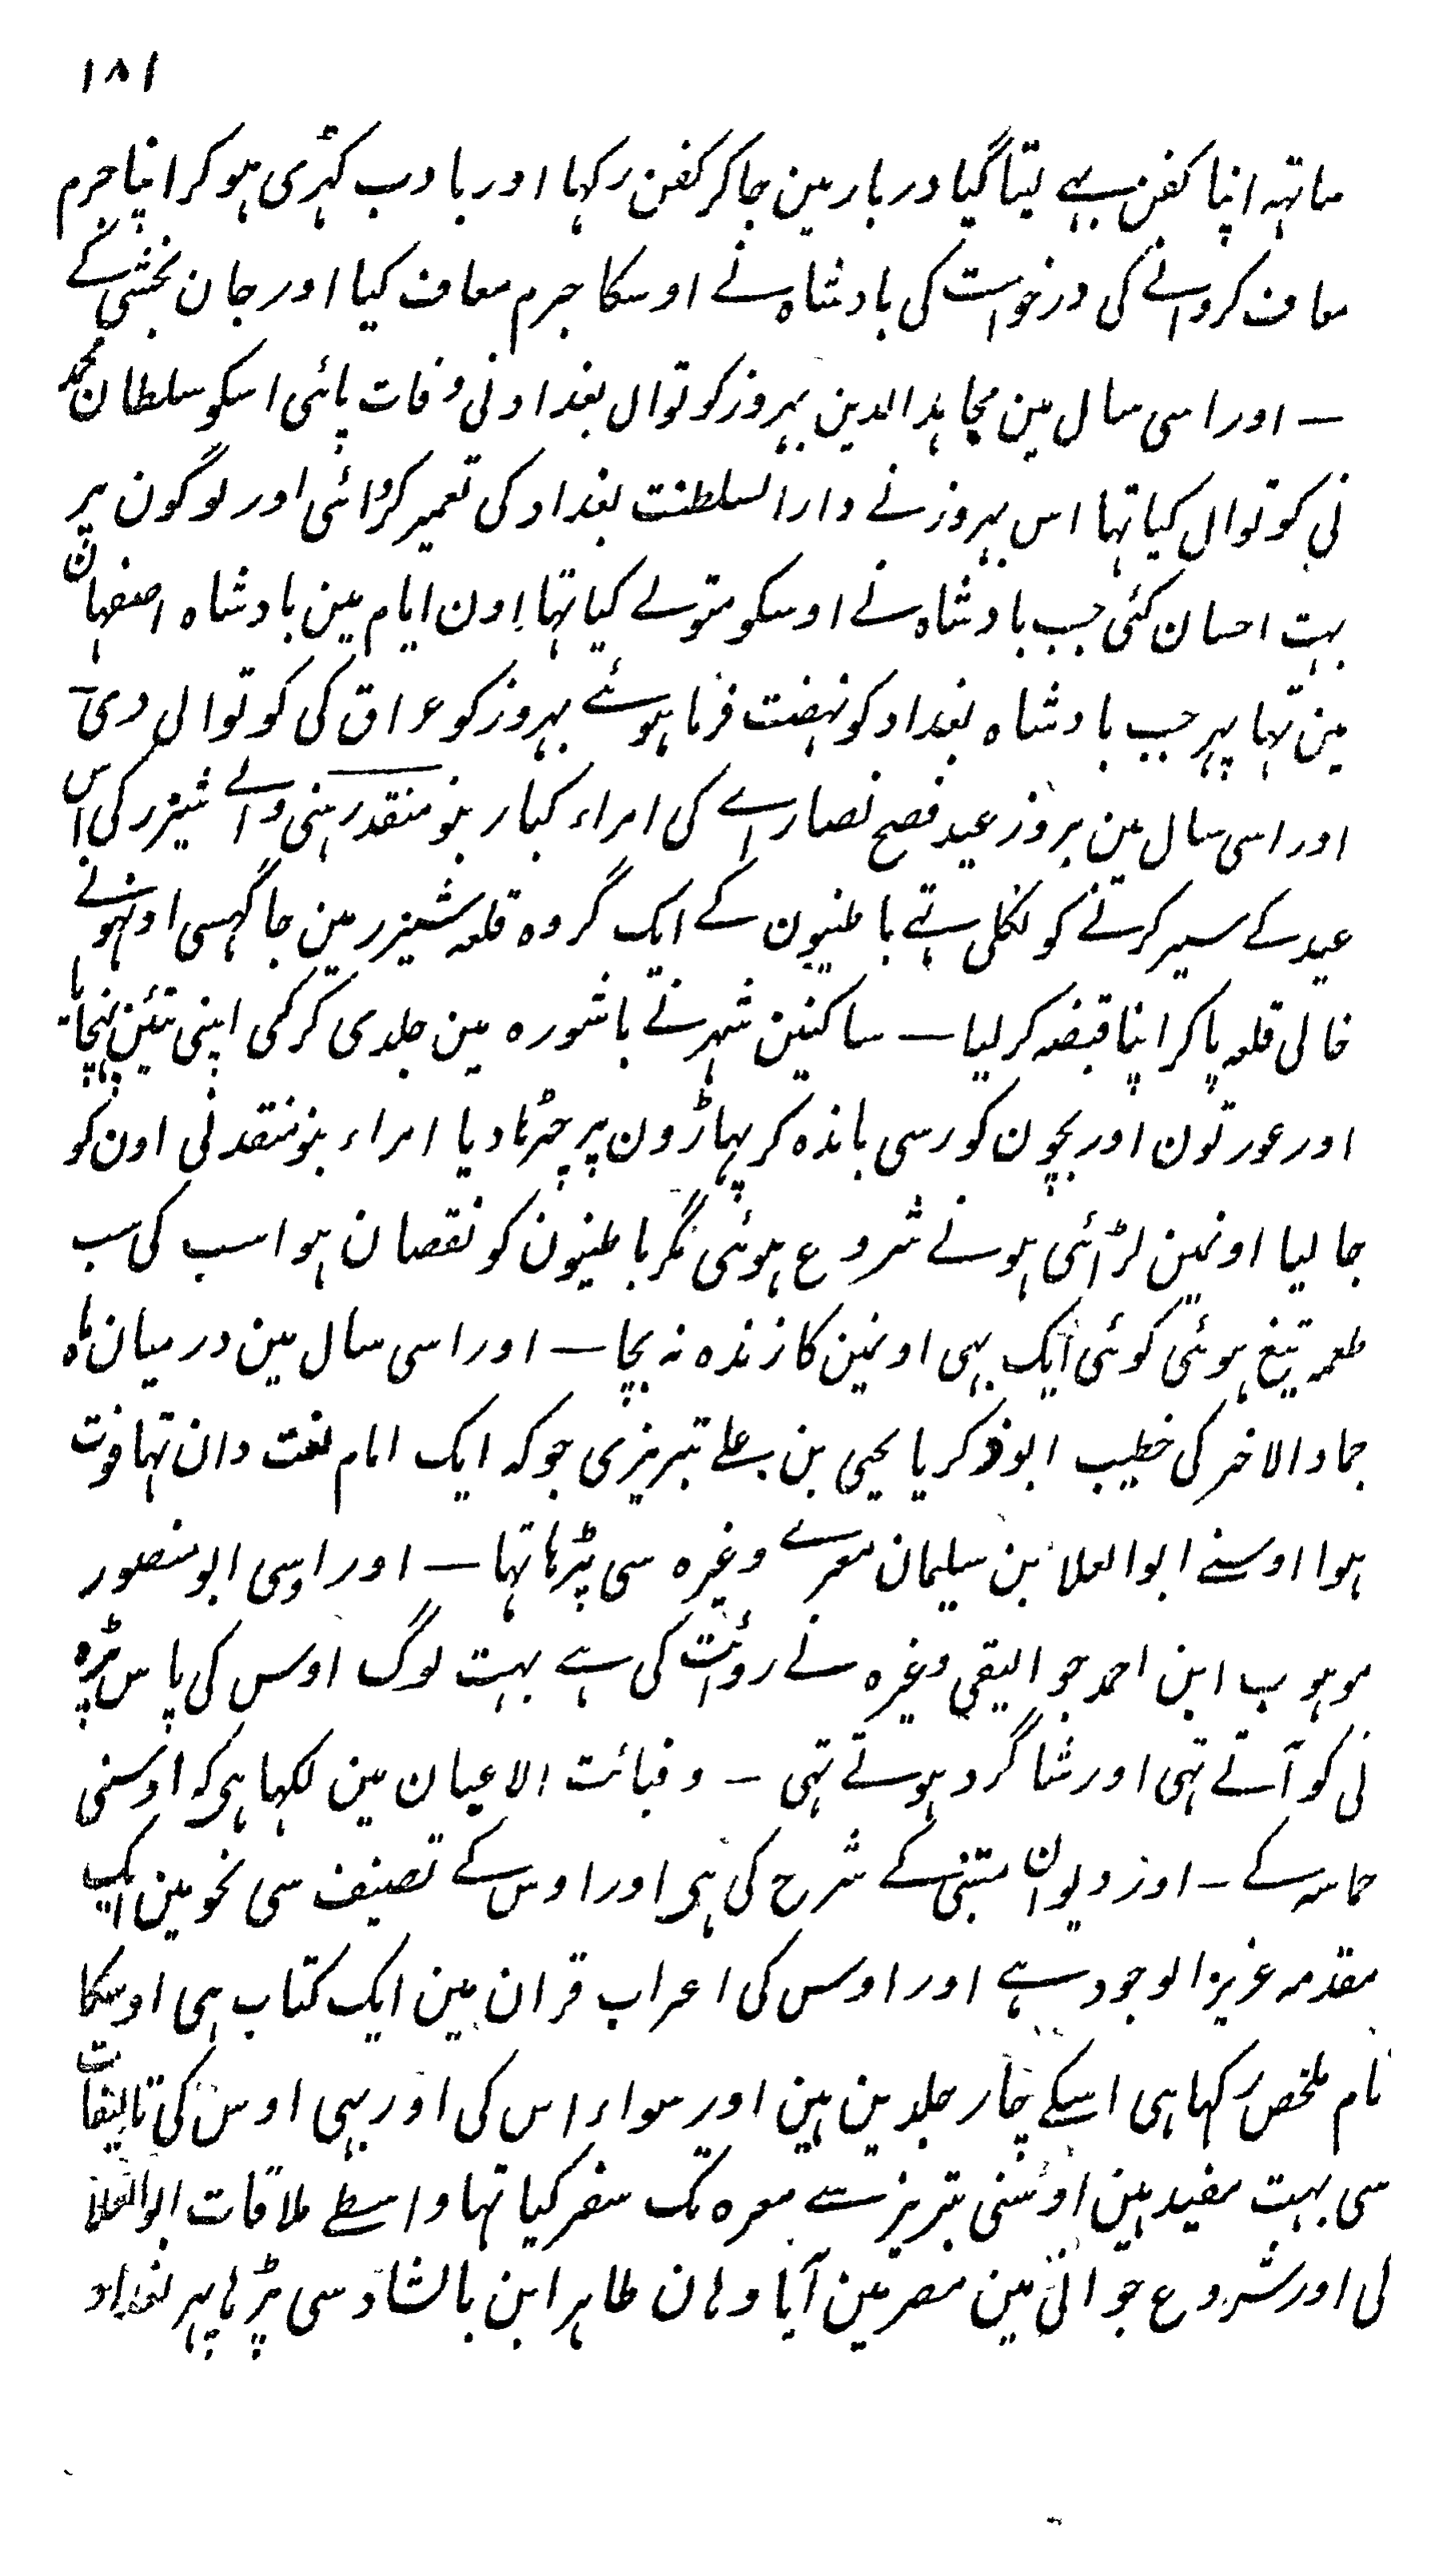 ۱۸۱
ساتہہ اپنا کفن بہے لیتا گیا دربار مین جاکر کفن رکہا اور بادب کہڑی ہوکر اپنا جرم
معاف کروانے کی درخواست کی بادشاہ نے اوسکا جرم معاف کیا اور جان بخشی کے
— اور اسی سال مین مجاہد الدین بہروز کوتوال بغداد نی وفات پائی اسکو سلطان محمد
نی کوتوال کیا تہا اس بہروز نے دار السلطنت بغداد کی تعمیر کروائی اور لوگون پر
بہت احسان کئی جب بادشاہ نے اوسکو متولے کیا تہا اون ایام مین بادشاہ اصفہان
مین تہا پہر جب بادشاہ بغداد کو نہضت فرما ہوئے بہروز کو عراق کی کوتوالی دی
اور اسی سال مین بروز عید فصح نصاراے کی امراء کبار بنو منقذ رہنی والے شیزر کی اس
عید کے سیر کرنے کو نکلی تہے باطنیون کے ایک گروہ قلعہ شیزر مین جا گہسی اونہونے
خالی قلعہ پاکر اپنا قبضہ کرلیا — ساکنین شہر نے باشورہ مین جلدی کرکی اپنی تئین پہنچایا
اور عورتون اور بچون کو رسی باندہ کر پہاڑون پر چڑہا دیا امراء بنو منقذ نی اون کو
جا لیا اونمین لڑائی ہونے شروع ہوئی مگر باطنیون کو نقصان ہوا سب کی سب
طعمہ تیغ ہوئی کوئی ایک بہی اونمین کا زندہ نہ بچا — اور اسی سال مین درمیان ماہ
جماد الاخر کی خطیب ابوذکریا یحیی بن علے تبریزی جو کہ ایک امام لغت دان تہا فوت
ہوا اوسنے ابو العلا بن سلیمان معرے وغیرہ سی پڑہا تہا — اور اوسی ابو منصور
موہوب ابن احمد جوالیقی وغیرہ نے روائت کی ہے بہت لوگ اوس کی پاس پڑہ
نی کو آتے تہی اور شاگرد ہوتے تہی — وفیائت الاعیان مین لکہا ہی کہ اوسنی
حماسہ کے — اور دیوان متنبی کے شرح کی ہی اور اوس کے تصنیف سی نحو مین ایک
مقدمہ عزیز الوجود ہے اور اوس کی اعراب قران مین ایک کتاب ہی اوسکا
نام ملخص رکہا ہی اسکے چار جلدین ہین اور سواء اس کی اور بہی اوس کی تالیفات
سی بہت مفید ہین اوسنی تبریز سے معرہ تک سفر کیا تہا واسطے ملاقات ابو العلا
لی اور شروع جوانی مین مصر مین آیا وہان طاہر ابن بالشاد سی پڑہا پہر بغداد